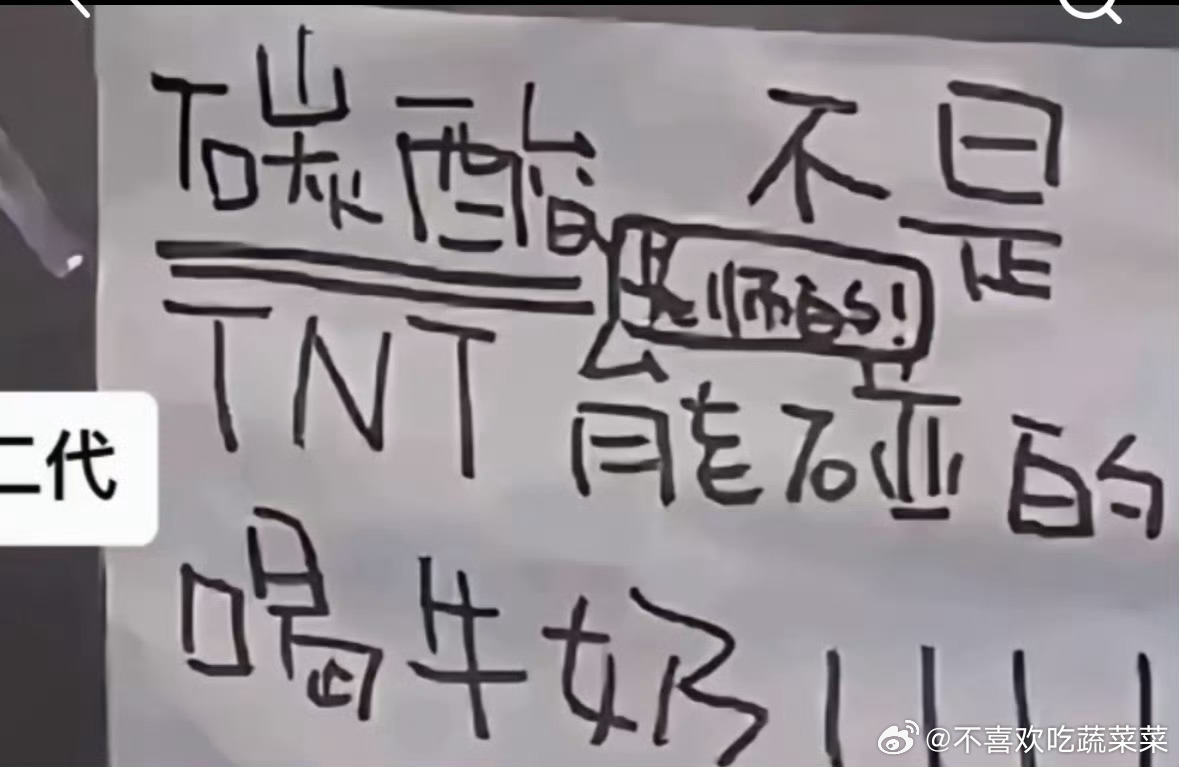 碳酸 不是
老师的!
TNT 能碰的
二代
喝牛奶！！！！
@不喜欢吃蔬菜菜